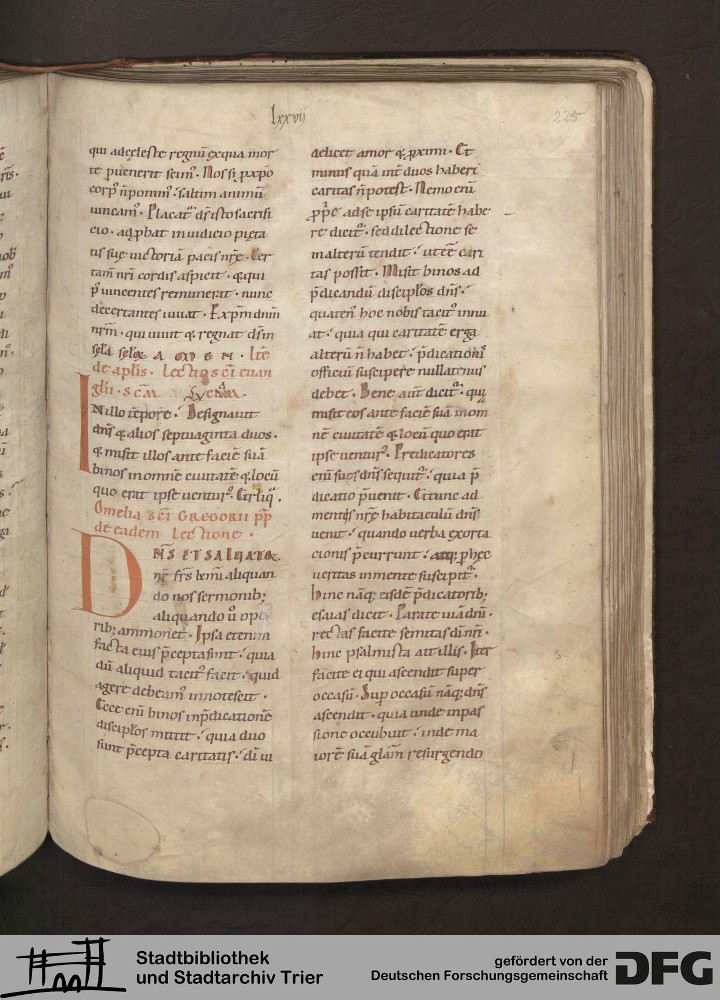 lxxvii
225
qui adęleste regnū exqua mor
te puenerit seim᷒. Nos si pxpo
corp᷒ ñponim᷒. saltim animū
uincam᷒. Placat᷑ dš isto sacrifi
cio. adpbat inuidicio pięta
tis suę uictoriā pacis nr̄ę. Cer
tam̄ nr̄i cordis aspicit. & qui
p᷒ uincentes remunerat. nunc
decertantes iuuat. P xpm dnm̄
nr̄m. qui uiuit & regnat dš in
scła scłoꝝ AMEN. Itē
de aplis. Lectio sc̄i euan
glii. s̄cm̄ Lucā
IN illo tēpore. Designauit
dn̄s & alios septuaginta duos.
& misit illos ante faciē suā
binos inomnē ciuitatē & locū
quo erat ipse uentur᷒. Et rliq̄.
Omelia sc̄i GREGORII pp̄
de eadem Lectione.
DN̄S ET SALUATOR
nr̄ fr̄s km̄i aliquan
do nos sermonib;
aliquando ū ope
rib; ammonet. Ipsa etenim
facta eius p̄cepta sunt. quia
dū aliquid tacit᷒ facit. quid
agere debeam᷒ innotescit.
Ecce enī binos inp̄dicationē
discipłos mittit. quia duo
sunt p̄cepta caritatis. dī ui
delicet amor & pximi. Et
minus quā int̄ duos haberi
caritas ñ potest. Nemo enī
ppr̄e adse ipsū caritatē habe
re dicit᷑. sed dilectione se
inalterū tendit. ut eē cari
tas possit. Misit binos ad
p̄dicandū discipłos dn̄s.
quaten᷒ hoc nobis tacit᷒ innu
at. quia qui caritatē erga
alterū ñ habet. p̄dicationis
officiū suscipere nullatenus
debet. Bene aūt dicit᷑. quia
misit eos ante faciē suā inom
nē ciuitatē & locū quo erat
ipse uentur᷒. Predicatores
enī suos dn̄s sequit᷑. quia p̄
dicatio p̄uenit. Et tunc ad
mentis nr̄ę habitaculū dn̄s
uenit. quando uerba exorta
tionis p̄currunt. atq; p hęc
ueritas inmente suscipit᷑.
Hinc nāq; eisdē p̄dicatorib;
esaias dicit. Parate uiā dn̄i.
rectas facite semitas dī nr̄i.
Hinc psalmista ait illis. Iter
facite ei qui ascendit super
occasū. Sup occasū nāq; dn̄s
ascendit. quia unde inpas
sione occubuit. inde ma
iorē suā glām resurgendo
Stadtbibliothek
und Stadtarchiv Trier
gefördert von der
Deutschen Forschungsgemeinschaft
DFG